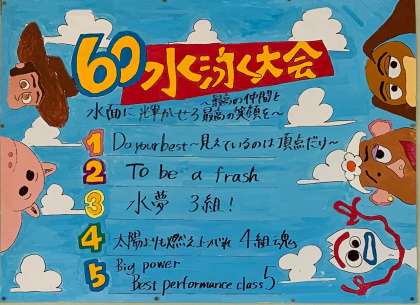 60 水泳大会
～最高の仲間と
水面に輝かせろ 最高の笑顔を～
1 Do your best～見えているのは頂点だけ～
2 To be a frash
3 水夢 3組!
4 太陽よりも燃え上がれ 4組魂
5 Big power
Best performance class 5